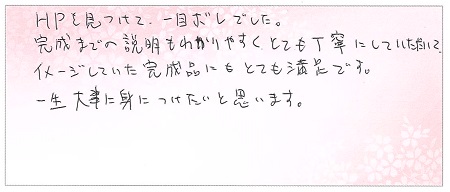 HPを見つけて、一目ボレでした。
完成までの説明もわかりやすくとても丁寧にしていただいて、
イメージしていた完成品にもとても満足です。
一生大事に身につけたいと思います。